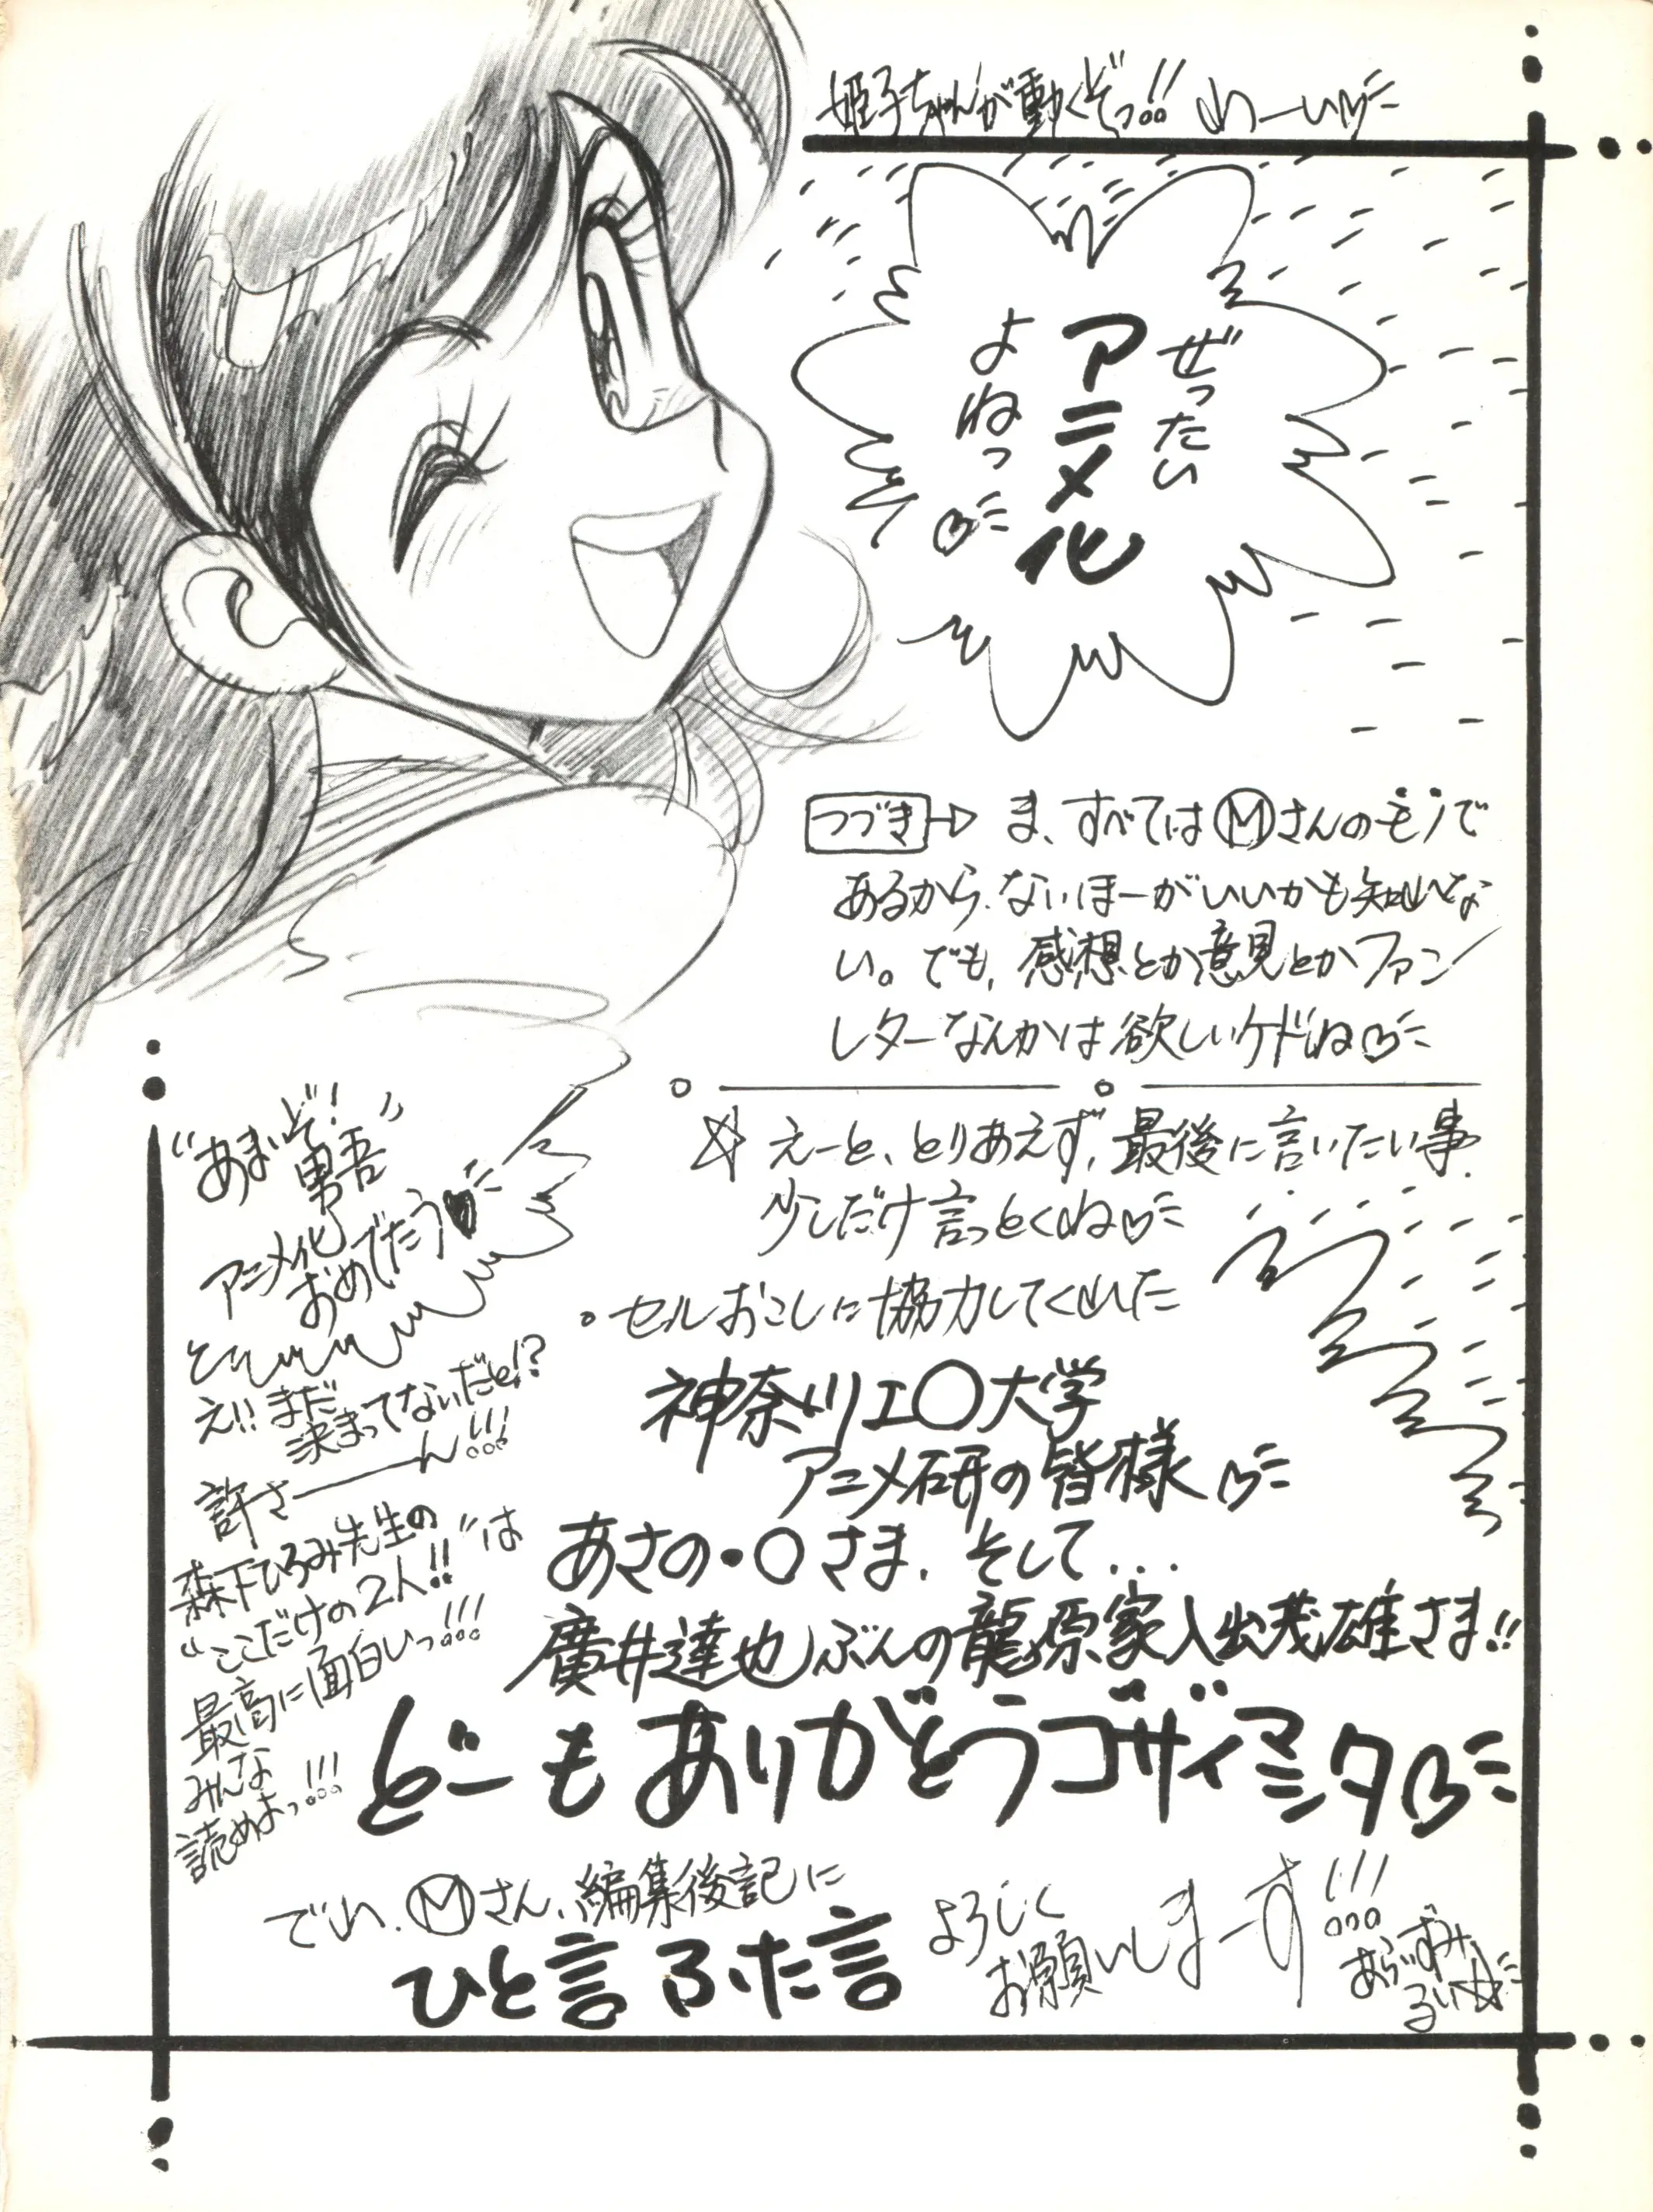 姫子ちゃんが動くぞっ!! わーい♡
ぜったい
アニメ化
よねっ♡
つづき ま、すべてはⓂさんのモノで
あるから、ないほーがいいかも知れな
い。でも、感想とか意見とかファン
レターなんかは欲しいケドね♡
☆ えーと、とりあえず、最後に言いたい事
少しだけ言っとくね♡
。セルおこしに協力してくれた
神奈川工〇大学
アニメ研の皆様♡
あさの・〇さま、そして...
廣井達也ぶんの龍原家入出茂雄さま!!
どーもありがとうゴザイマシタ♡
“あまいぞ!
男吾”
アニメ化
おめでたう♥
え!! まだ
決まってないだと!?
許さーーん!!!
森下ひろみ先生の
“ここだけの2人!!”は
最高に面白いっ!!!
みんな
読めよっ!!!
でわ、Ⓜさん、編集後記に
ひと言ふた言
よろしく
お願いしまーす!!!
あらいずみ
るい☆